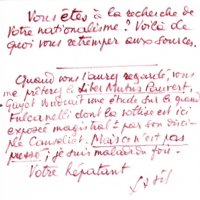 Vous êtes à la recherche de
votre nationalisme ? Voilà de
quoi vous retremper aux sources.
Quand vous l'aurez regardé, vous
me prêterez le Liber Mutus Pauvert.
Guyot voudrait une étude sur la grand
Fulcanelli dont la sottise est ici
exposé magistralt par son disci-
ple Canseliet. Mais ce n'est pas
pressé ; je suis malade du foie.
Votre Répatant